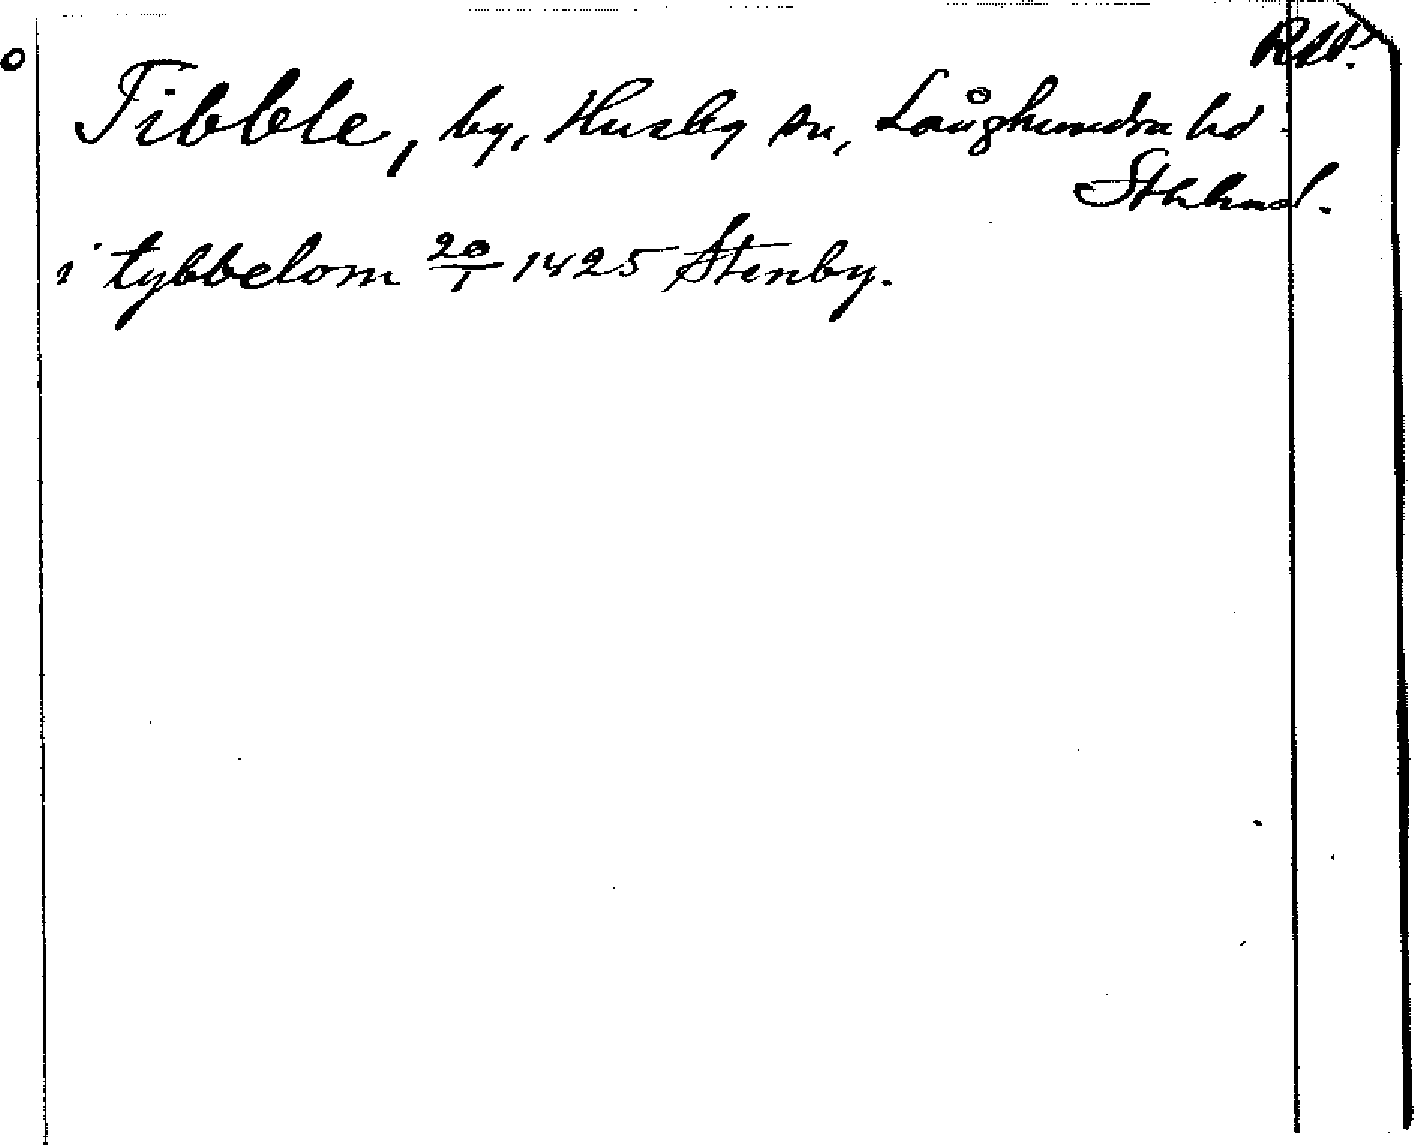 Tibble, by, Husby sn, Långhundra hd
Sthlmsl.
i tybbelom 20/1 1425 Stenby.